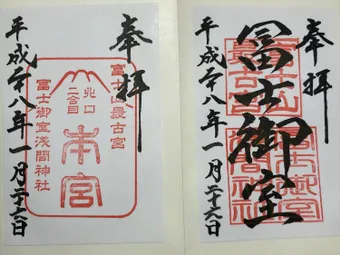 奉拝
冨士御室
平成二十八年一月二十六日
奉拝
富士山最古宮
北口
二合目
本宮
冨士御室浅間神社
平成二十八年一月二十六日